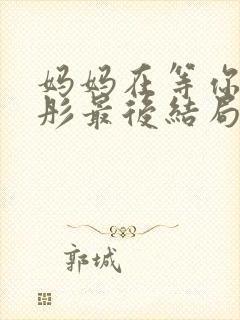 妈妈在等你
彤最後結局
郭城